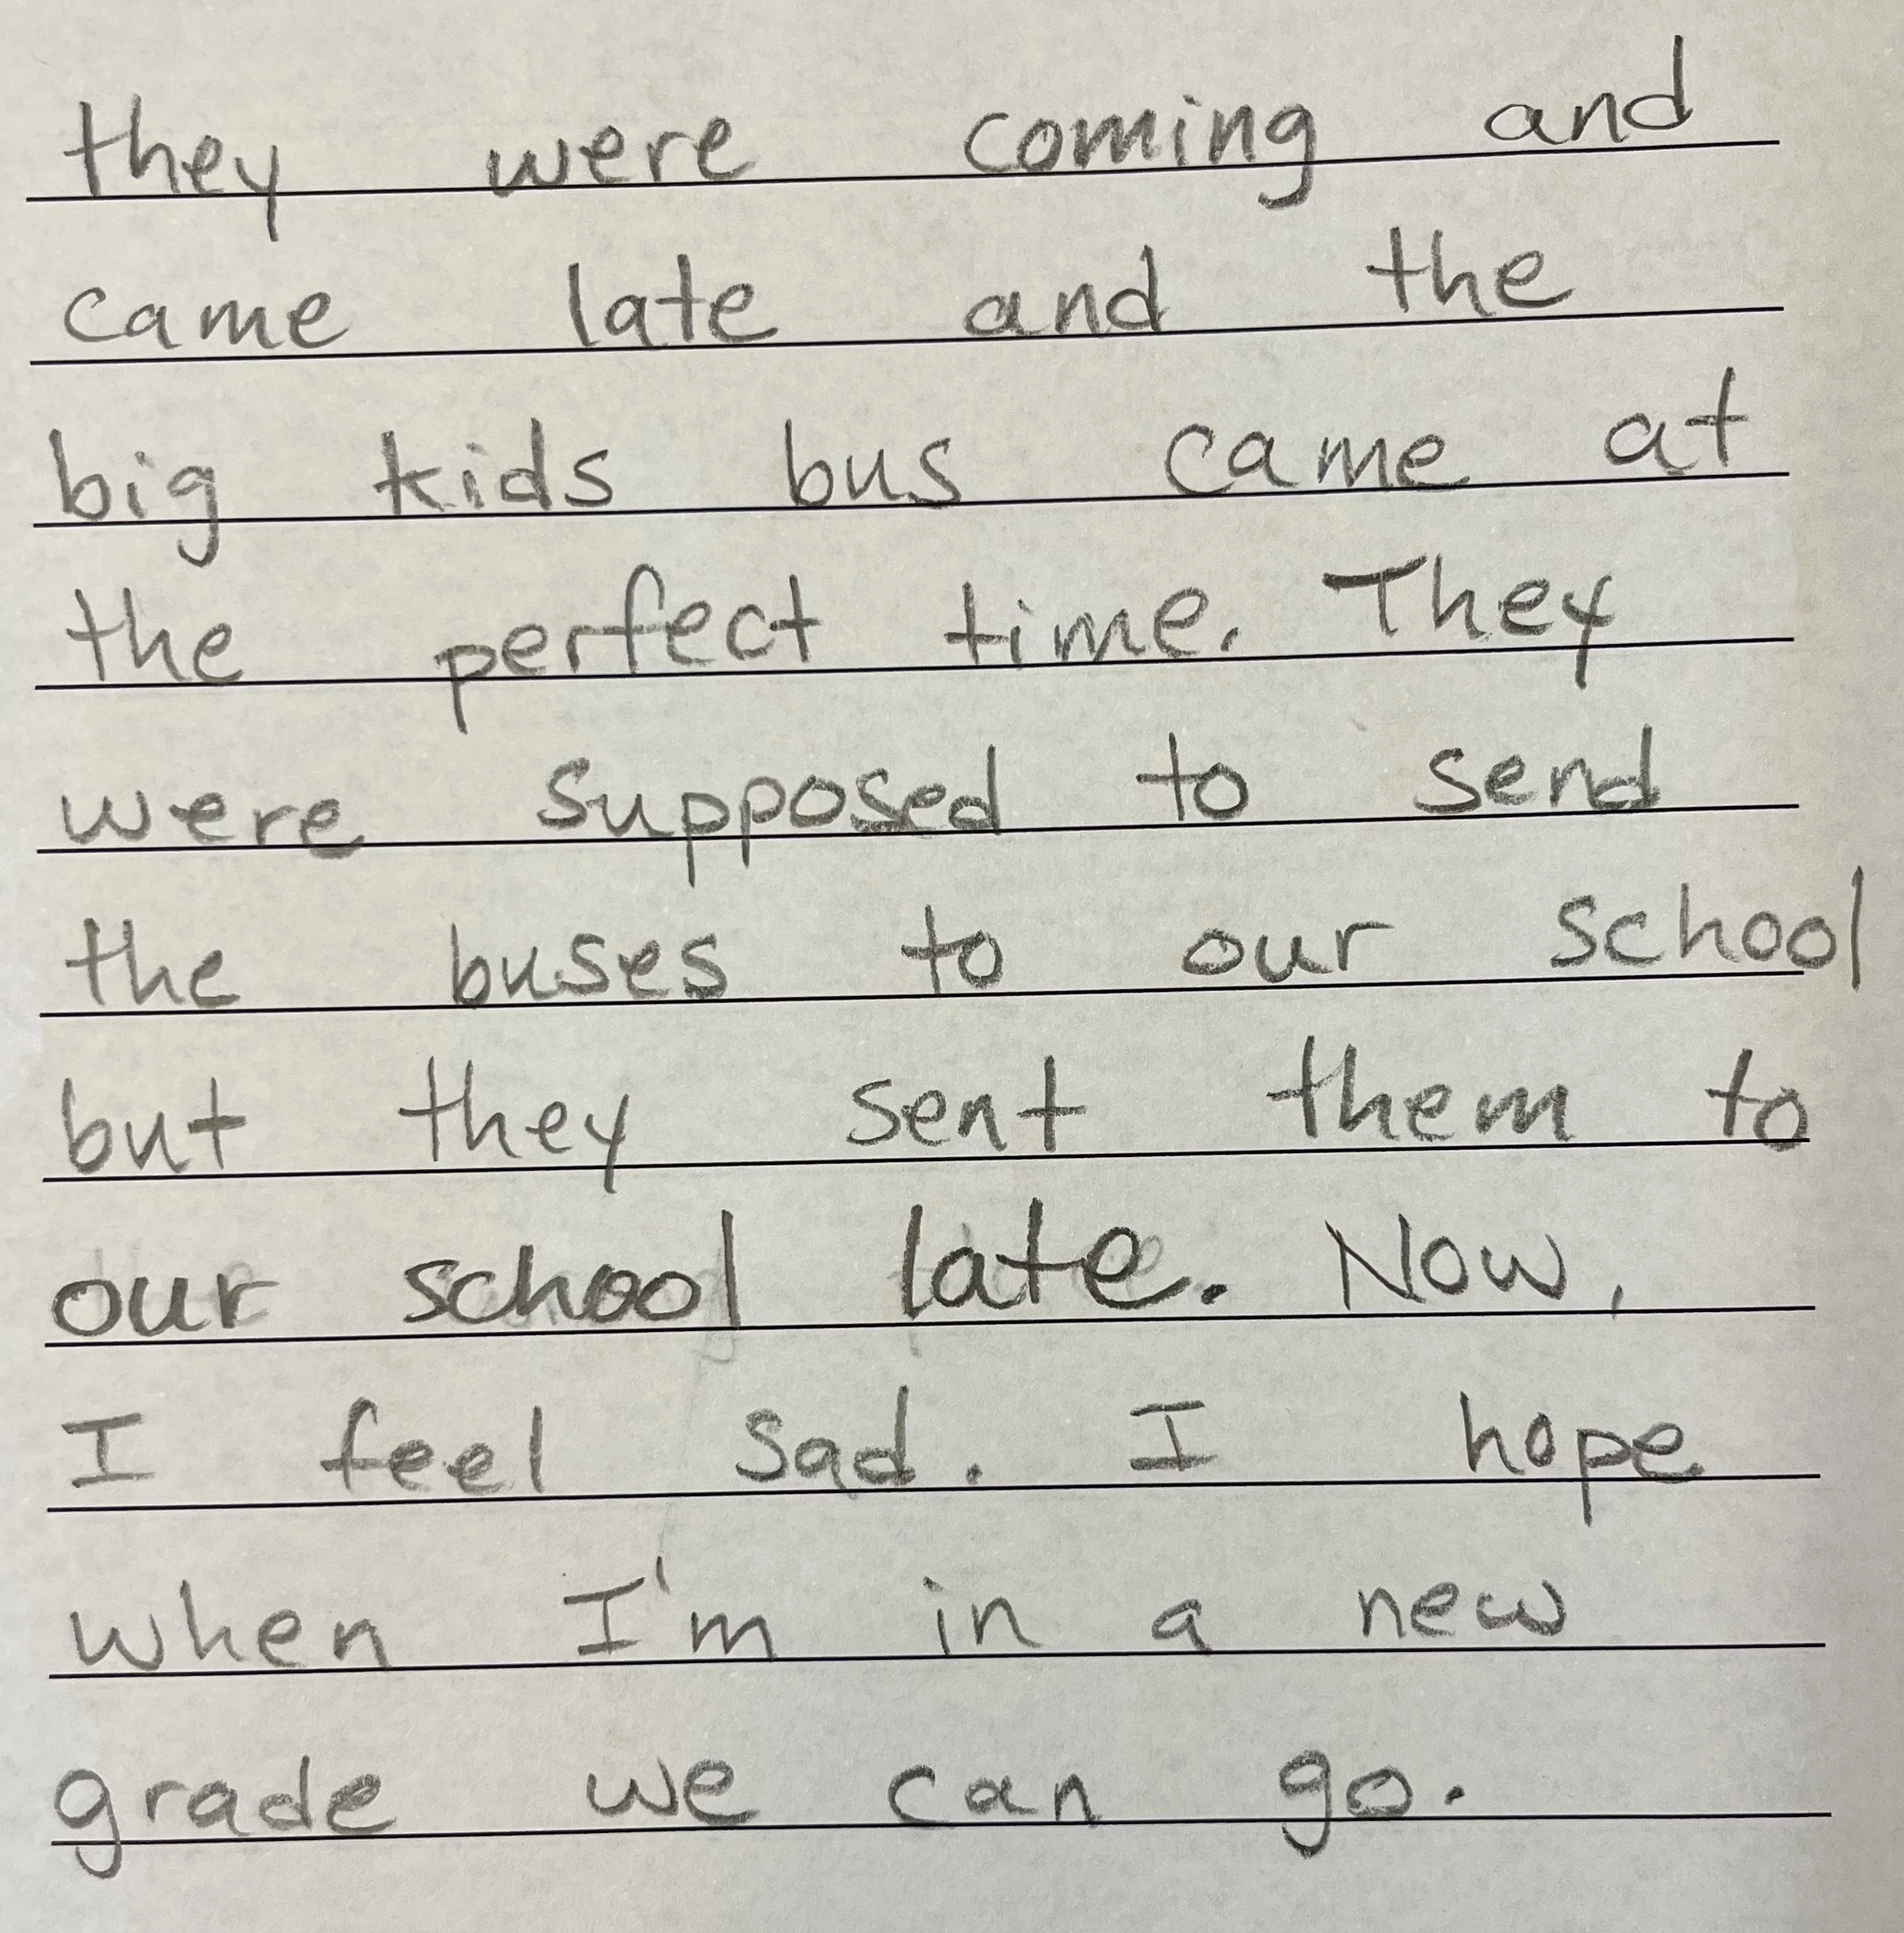 they were coming and
came late and the
big kids bus came at
the perfect time. They
were supposed to send
the buses to our school
but they sent them to
our school late. Now,
I feel sad. I hope
when I'm in a new
grade we can go.